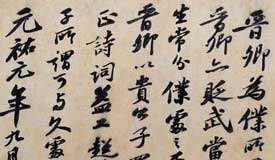 晉卿為僕所
晉卿亦貶武當
生常分僕處不
晉卿以貴公子
正詩詞益工超
子所謂可与久處
元祐元年九月